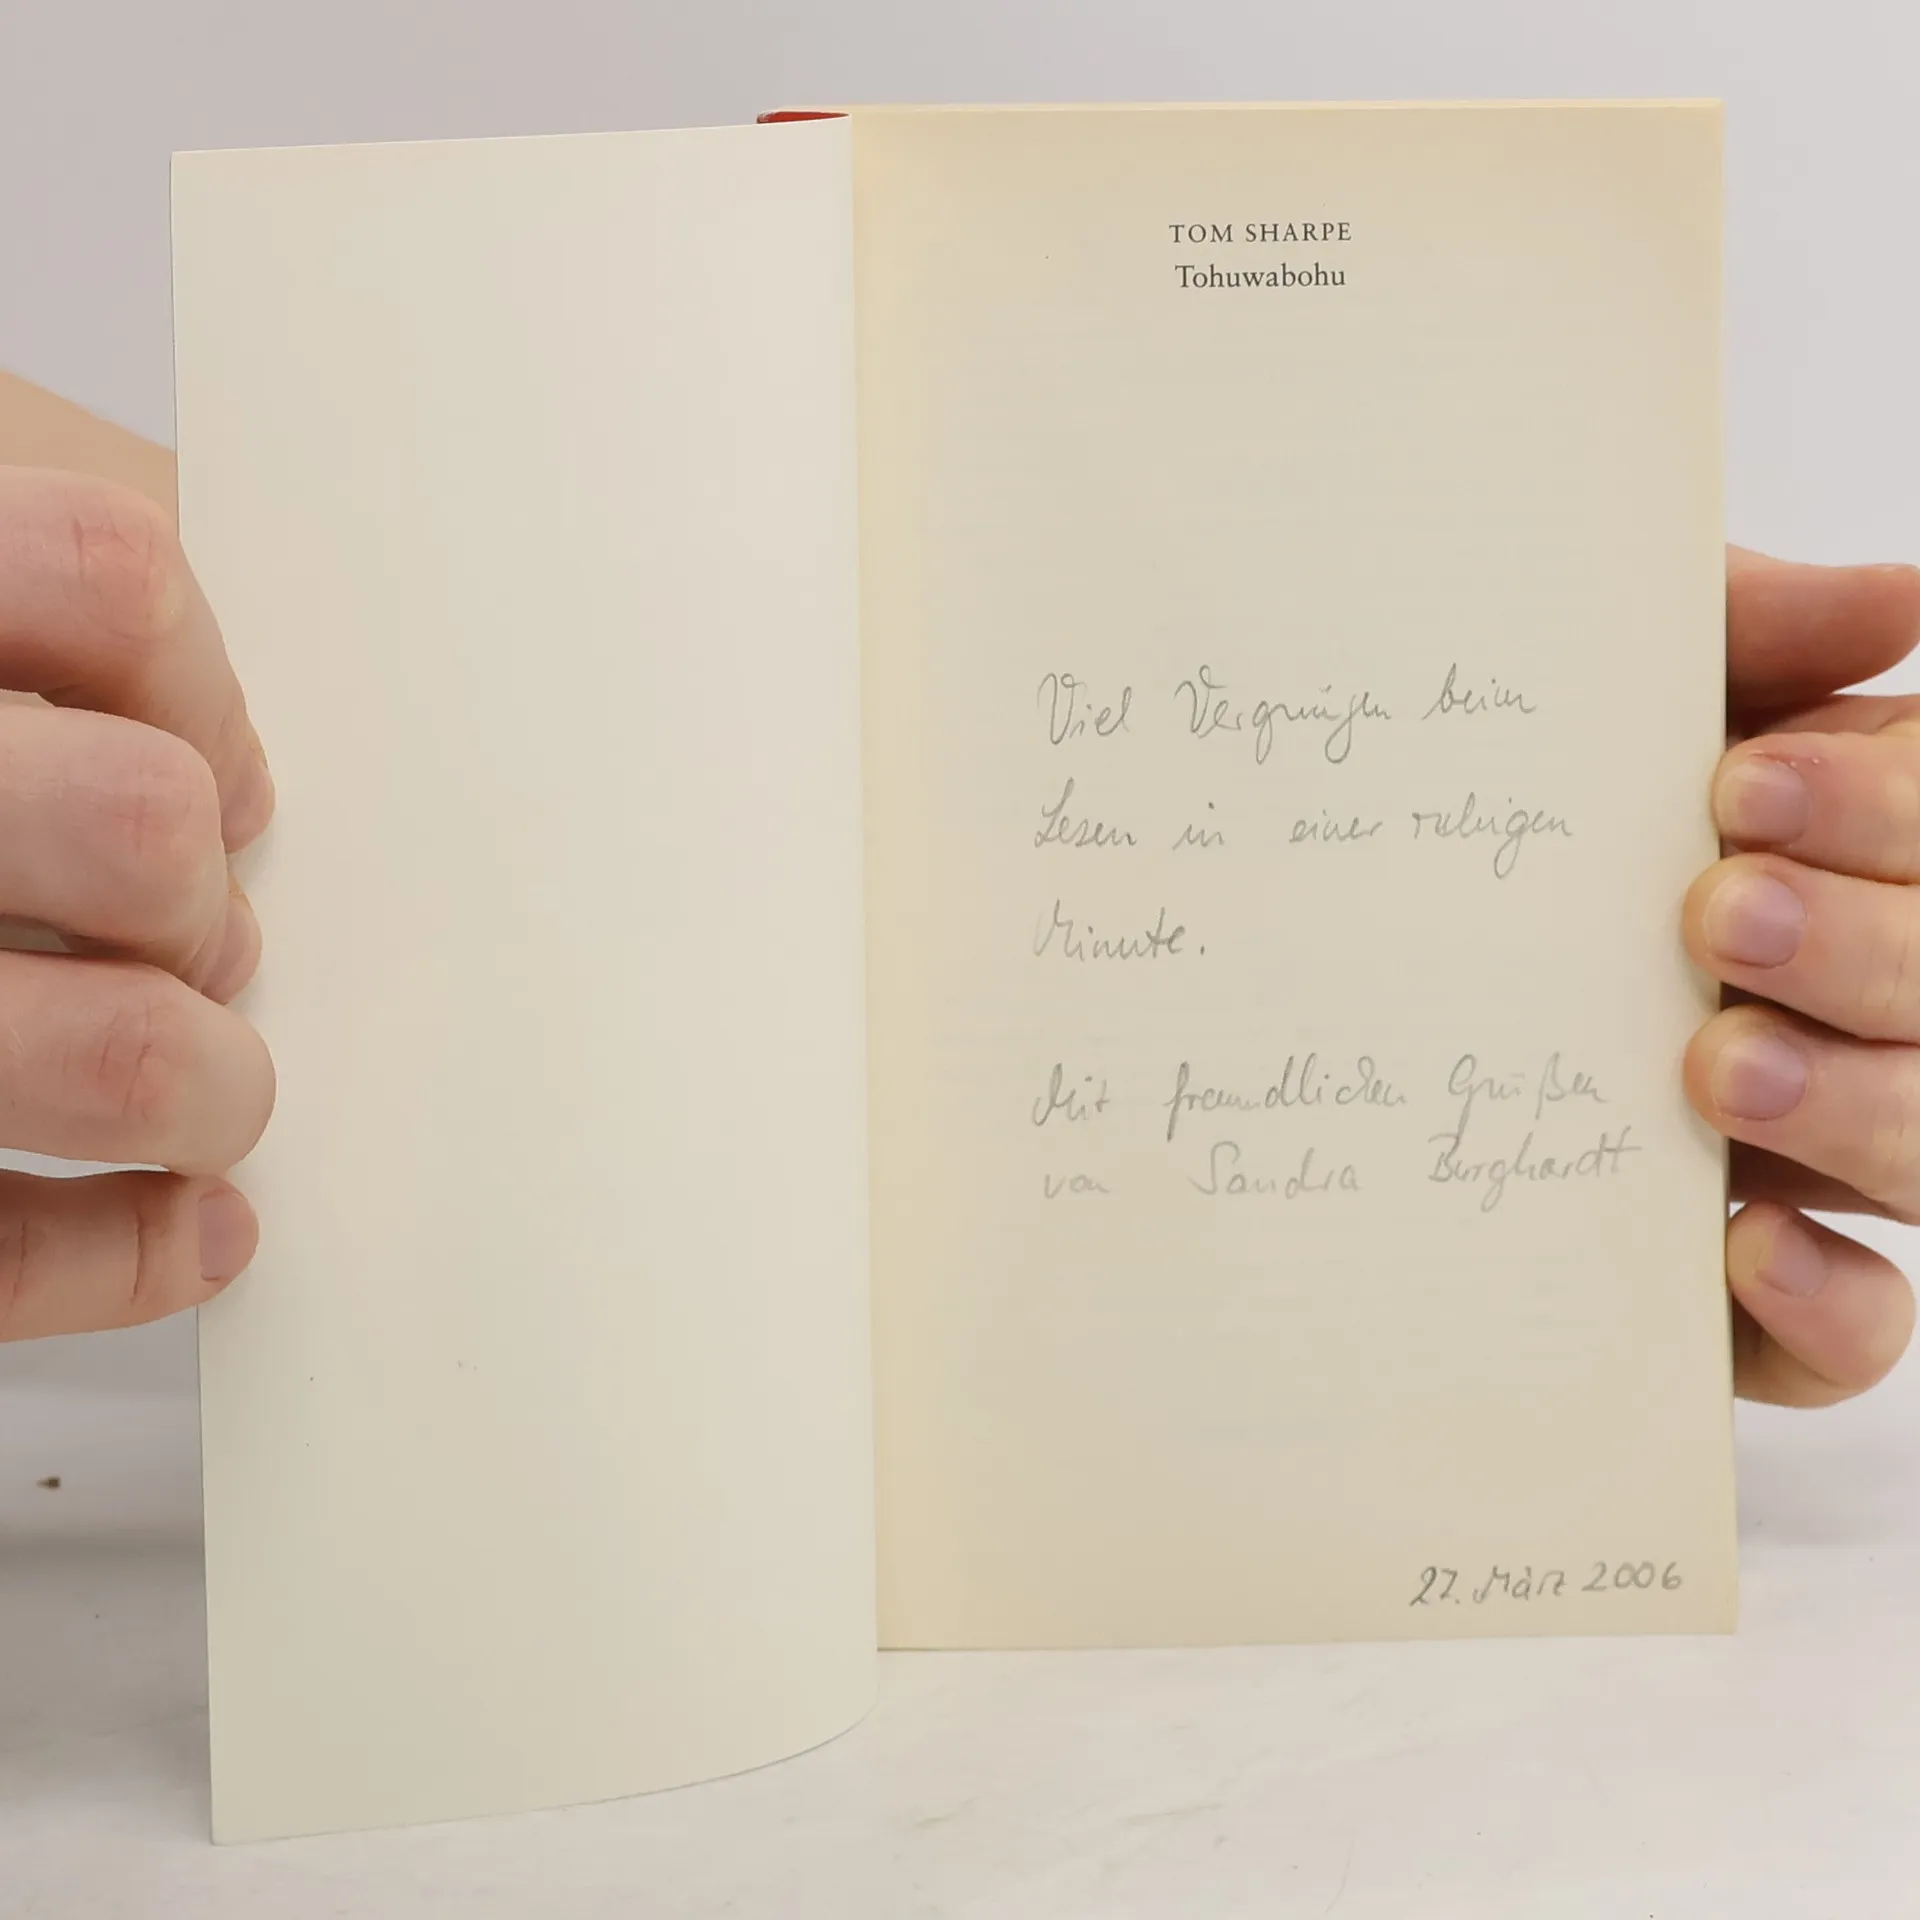 TOM SHARPE
Tohuwabohu
Viel Vergnügen beim
Lesen in einer ruhigen
Minute.
Mit freundlichen Grüßen
von Sandra Burghardt
27. März 2006